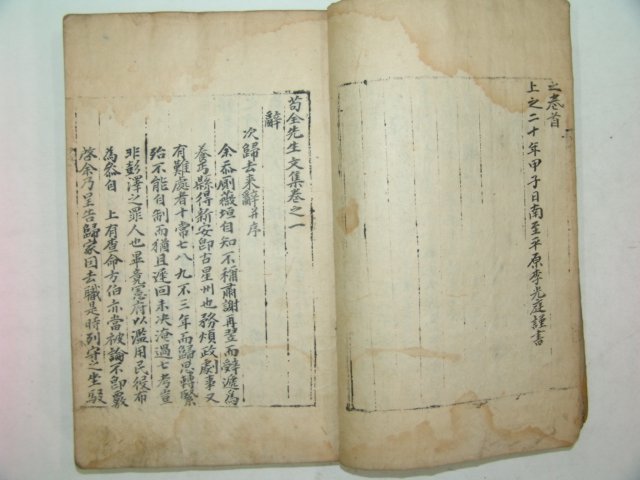 之卷首
上之二十年甲子日南至平原李光庭謹書
苟全先生文集卷之一
辭
次歸去來辭并序
余忝廁薇垣自知不稱肅謝再登而辭遞爲
養乞縣得新安卽古星州也務煩政劇事又
有難處者十常七八九不三年而歸思轉緊
殆不能自制而猶且遲回未決淹過七考豈
非彭澤之罪人也畢竟憲府以濫用民役布
爲咎自 上有查命方伯亦當被論不卽覈
啓余乃呈告歸家因去職是時列守之坐駁